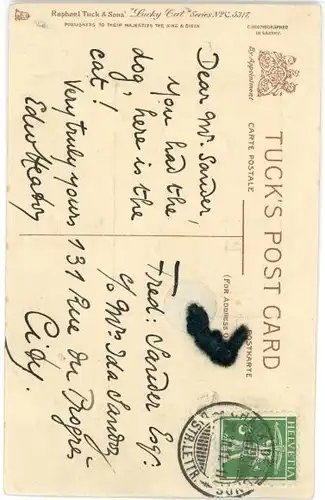 Raphael Tuck & Sons' "Lucky Cat" Series NO C. 5317.
PUBLISHERS TO THEIR MAJESTIES THE KING & QUEEN
By Appointment
TUCK'S POST CARD
CARTE POSTALE
POSTKARTE
(FOR ADDRESS
Dear Mr. Sander,
you had the
dog, here is the
cat!
Very truly yours
Fred: Sander Esq.
c/o Mrs Ida Sandoz
131 Rue du Progrès
City.
HELVETIA
5